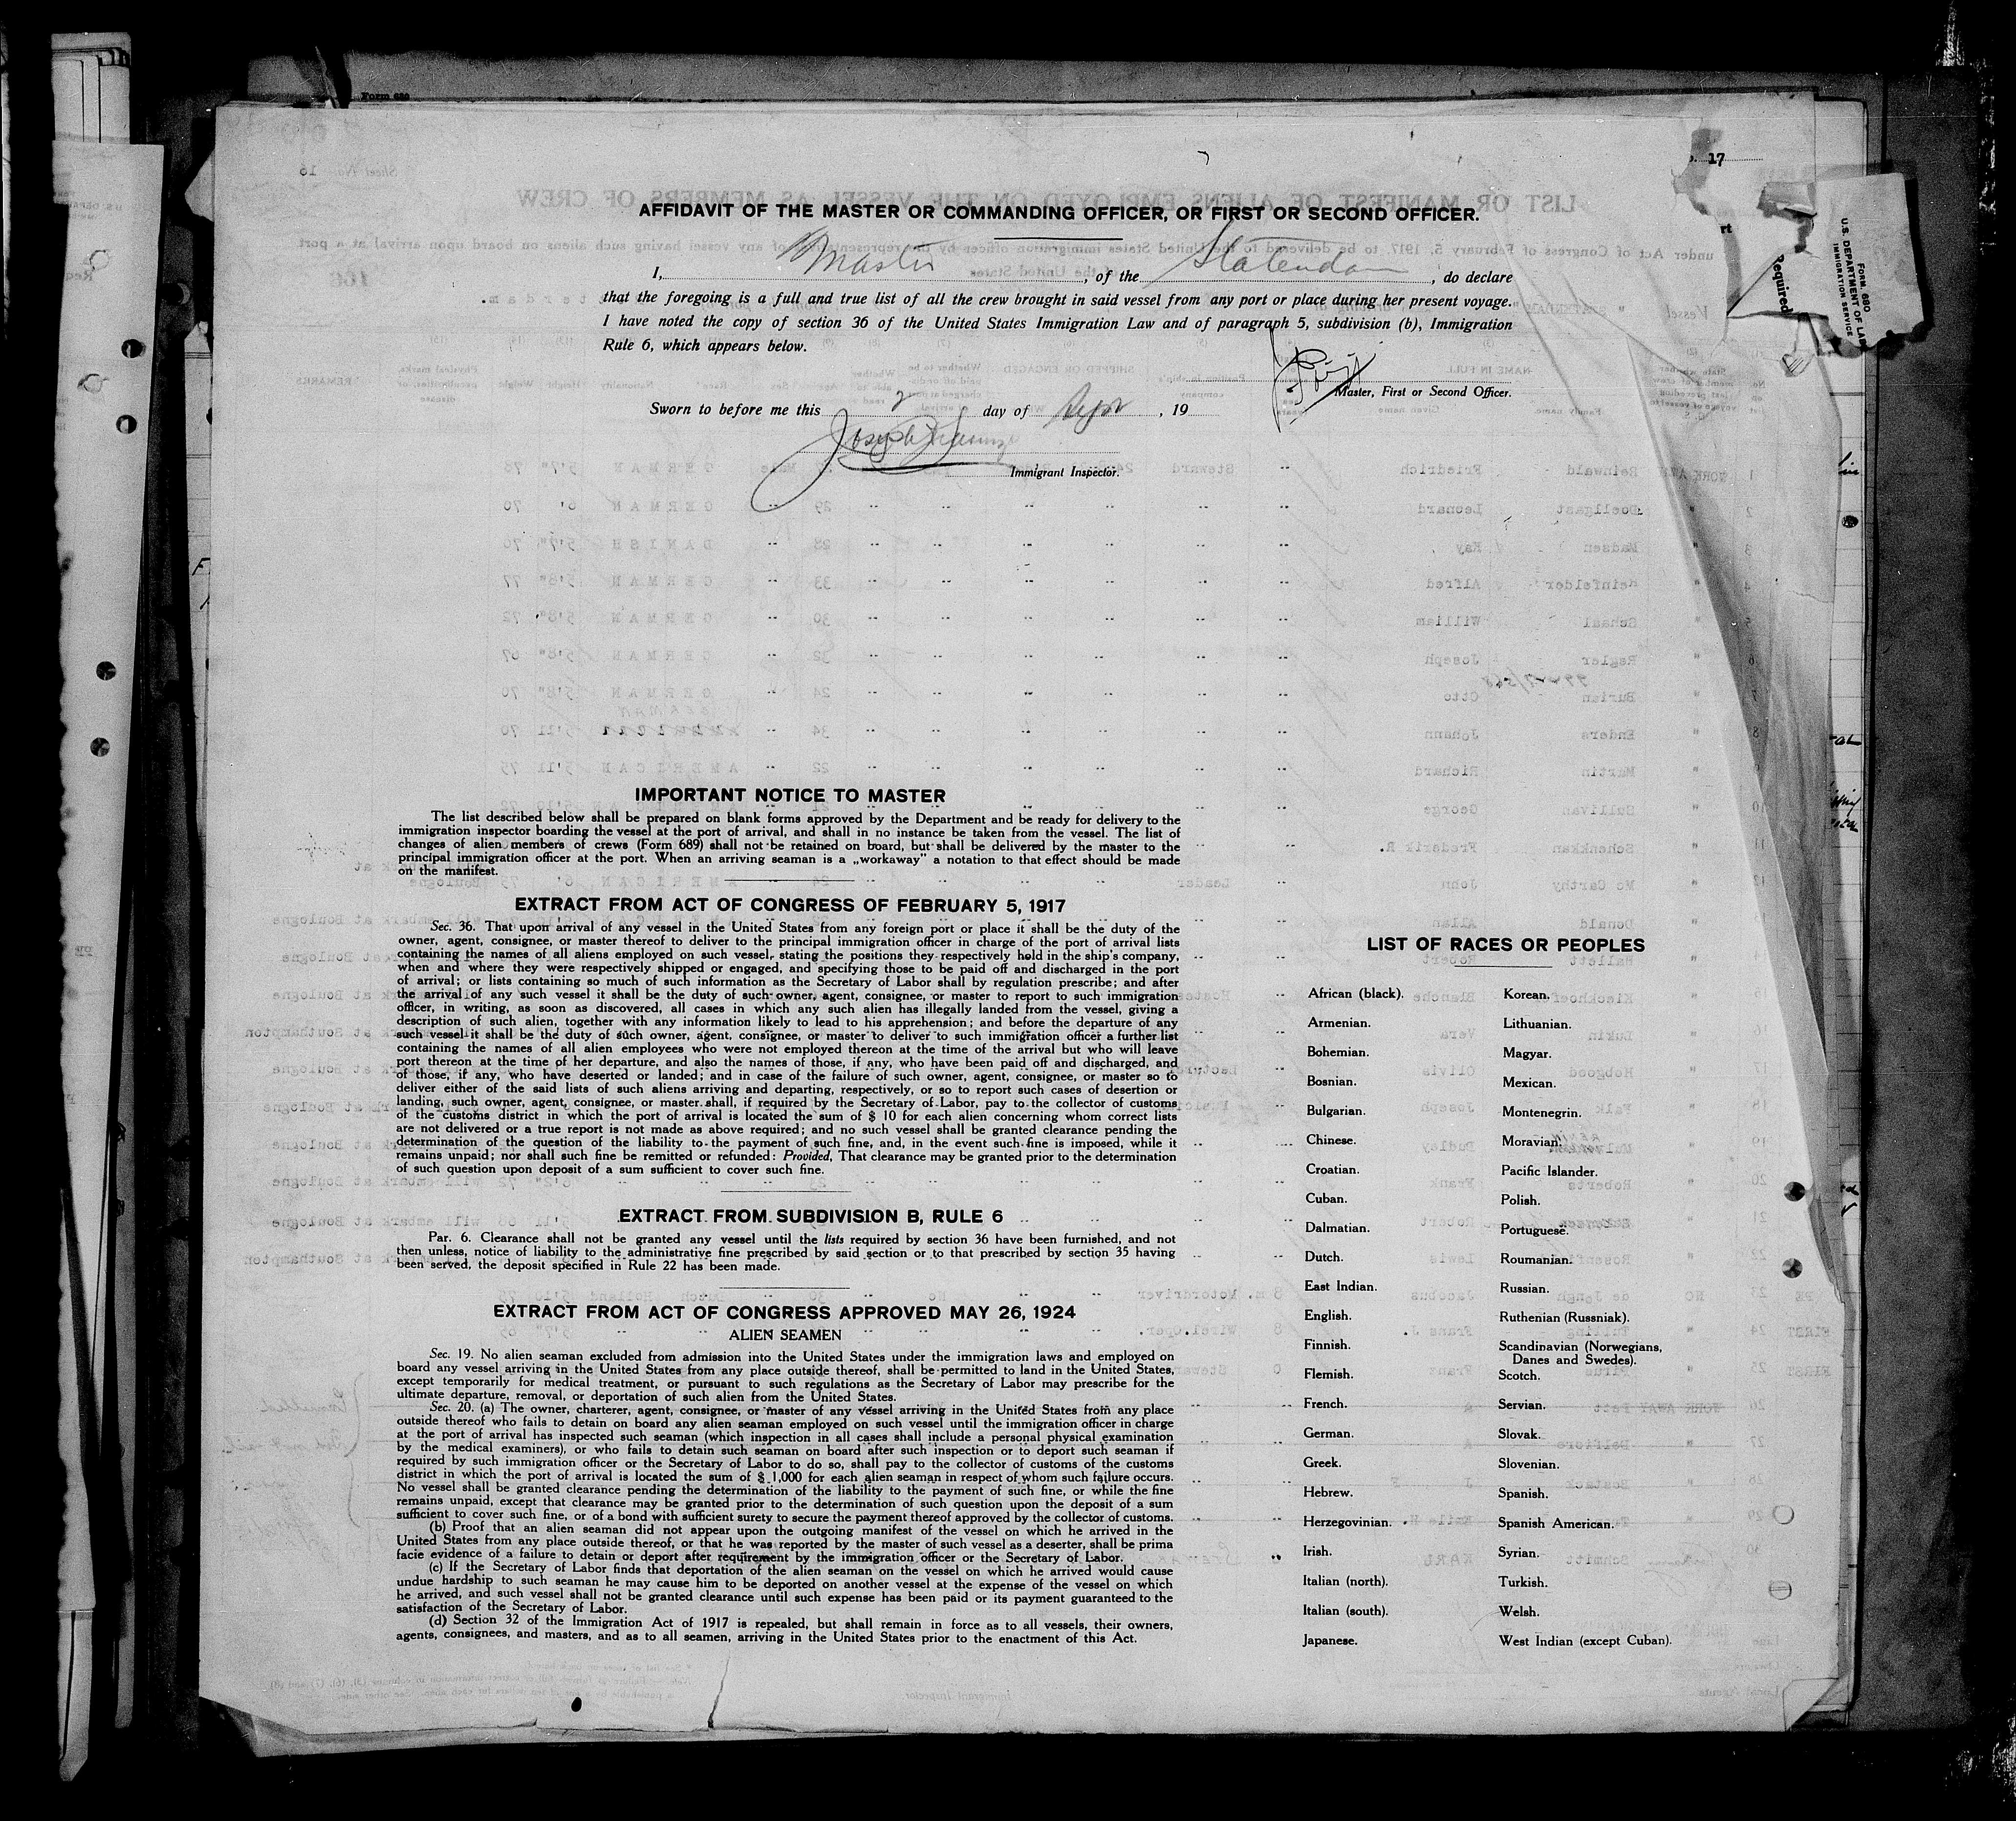 Form 689
17
AFFIDAVIT OF THE MASTER OR COMMANDING OFFICER, OR FIRST OR SECOND OFFICER.
I, Master, of the Statendam, do declare
that the foregoing is a full and true list of all the crew brought in said vessel from any port or place during her present voyage.
I have noted the copy of section 36 of the United States Immigration Law and of paragraph 5, subdivision (b), Immigration
Rule 6, which appears below.
Master, First or Second Officer.
Sworn to before me this 2 day of Sept, 19
Immigrant Inspector.
Required
FORM. 680
U.S. DEPARTMENT OF LAB
IMMIGRATION SERVICE
IMPORTANT NOTICE TO MASTER
The list described below shall be prepared on blank forms approved by the Department and be ready for delivery to the
immigration inspector boarding the vessel at the port of arrival, and shall in no instance be taken from the vessel. The list of
changes of alien members of crews (Form 689) shall not be retained on board, but shall be delivered by the master to the
principal immigration officer at the port. When an arriving seaman is a „workaway” a notation to that effect should be made
on the manifest.
EXTRACT FROM ACT OF CONGRESS OF FEBRUARY 5, 1917
Sec. 36. That upon arrival of any vessel in the United States from any foreign port or place it shall be the duty of the
owner, agent, consignee, or master thereof to deliver to the principal immigration officer in charge of the port of arrival lists
containing the names of all aliens employed on such vessel, stating the positions they respectively hold in the ship's company,
when and where they were respectively shipped or engaged, and specifying those to be paid off and discharged in the port
of arrival; or lists containing so much of such information as the Secretary of Labor shall by regulation prescribe; and after
the arrival of any such vessel it shall be the duty of such owner, agent, consignee, or master to report to such immigration
officer, in writing, as soon as discovered, all cases in which any such alien has illegally landed from the vessel, giving a
description of such alien, together with any information likely to lead to his apprehension; and before the departure of any
such vessel it shall be the duty of such owner, agent, consignee, or master to deliver to such immigration officer a further list
containing the names of all alien employees who were not employed thereon at the time of the arrival but who will leave
port thereon at the time of her departure, and also the names of those, if any, who have been paid off and discharged, and
of those, if any, who have deserted or landed; and in case of the failure of such owner, agent, consignee, or master so to
deliver either of the said lists of such aliens arriving and departing, respectively, or so to report such cases of desertion or
landing, such owner, agent, consignee, or master shall, if required by the Secretary of Labor, pay to the collector of customs
of the customs district in which the port of arrival is located the sum of $ 10 for each alien concerning whom correct lists
are not delivered or a true report is not made as above required; and no such vessel shall be granted clearance pending the
determination of the question of the liability to the payment of such fine, and, in the event such fine is imposed, while it
remains unpaid; nor shall such fine be remitted or refunded: Provided, That clearance may be granted prior to the determination
of such question upon deposit of a sum sufficient to cover such fine.
EXTRACT FROM SUBDIVISION B, RULE 6
Par. 6. Clearance shall not be granted any vessel until the lists required by section 36 have been furnished, and not
then unless, notice of liability to the administrative fine prescribed by said section or to that prescribed by section 35 having
been served, the deposit specified in Rule 22 has been made.
EXTRACT FROM ACT OF CONGRESS APPROVED MAY 26, 1924
ALIEN SEAMEN
Sec. 19. No alien seaman excluded from admission into the United States under the immigration laws and employed on
board any vessel arriving in the United States from any place outside thereof, shall be permitted to land in the United States,
except temporarily for medical treatment, or pursuant to such regulations as the Secretary of Labor may prescribe for the
ultimate departure, removal, or deportation of such alien from the United States.
Sec. 20. (a) The owner, charterer, agent, consignee, or master of any vessel arriving in the United States from any place
outside thereof who fails to detain on board any alien seaman employed on such vessel until the immigration officer in charge
at the port of arrival has inspected such seaman (which inspection in all cases shall include a personal physical examination
by the medical examiners), or who fails to detain such seaman on board after such inspection or to deport such seaman if
required by such immigration officer or the Secretary of Labor to do so, shall pay to the collector of customs of the customs
district in which the port of arrival is located the sum of $ 1,000 for each alien seaman in respect of whom such failure occurs.
No vessel shall be granted clearance pending the determination of the liability to the payment of such fine, or while the fine
remains unpaid, except that clearance may be granted prior to the determination of such question upon the deposit of a sum
sufficient to cover such fine, or of a bond with sufficient surety to secure the payment thereof approved by the collector of customs.
(b) Proof that an alien seaman did not appear upon the outgoing manifest of the vessel on which he arrived in the
United States from any place outside thereof, or that he was reported by the master of such vessel as a deserter, shall be prima
facie evidence of a failure to detain or deport after requirement by the immigration officer or the Secretary of Labor.
(c) If the Secretary of Labor finds that deportation of the alien seaman on the vessel on which he arrived would cause
undue hardship to such seaman he may cause him to be deported on another vessel at the expense of the vessel on which
he arrived, and such vessel shall not be granted clearance until such expense has been paid or its payment guaranteed to the
satisfaction of the Secretary of Labor.
(d) Section 32 of the Immigration Act of 1917 is repealed, but shall remain in force as to all vessels, their owners,
agents, consignees, and masters, and as to all seamen, arriving in the United States prior to the enactment of this Act.
LIST OF RACES OR PEOPLES
African (black).
Armenian.
Bohemian.
Bosnian.
Bulgarian.
Chinese.
Croatian.
Cuban.
Dalmatian.
Dutch.
East Indian.
English.
Finnish.
Flemish.
French.
German.
Greek.
Hebrew.
Herzegovinian.
Irish.
Italian (north).
Italian (south).
Japanese.
Korean.
Lithuanian.
Magyar.
Mexican.
Montenegrin.
Moravian.
Pacific Islander.
Polish.
Portuguese.
Roumanian.
Russian.
Ruthenian (Russniak).
Scandinavian (Norwegians,
Danes and Swedes).
Scotch.
Servian.
Slovak.
Slovenian.
Spanish.
Spanish American.
Syrian.
Turkish.
Welsh.
West Indian (except Cuban).